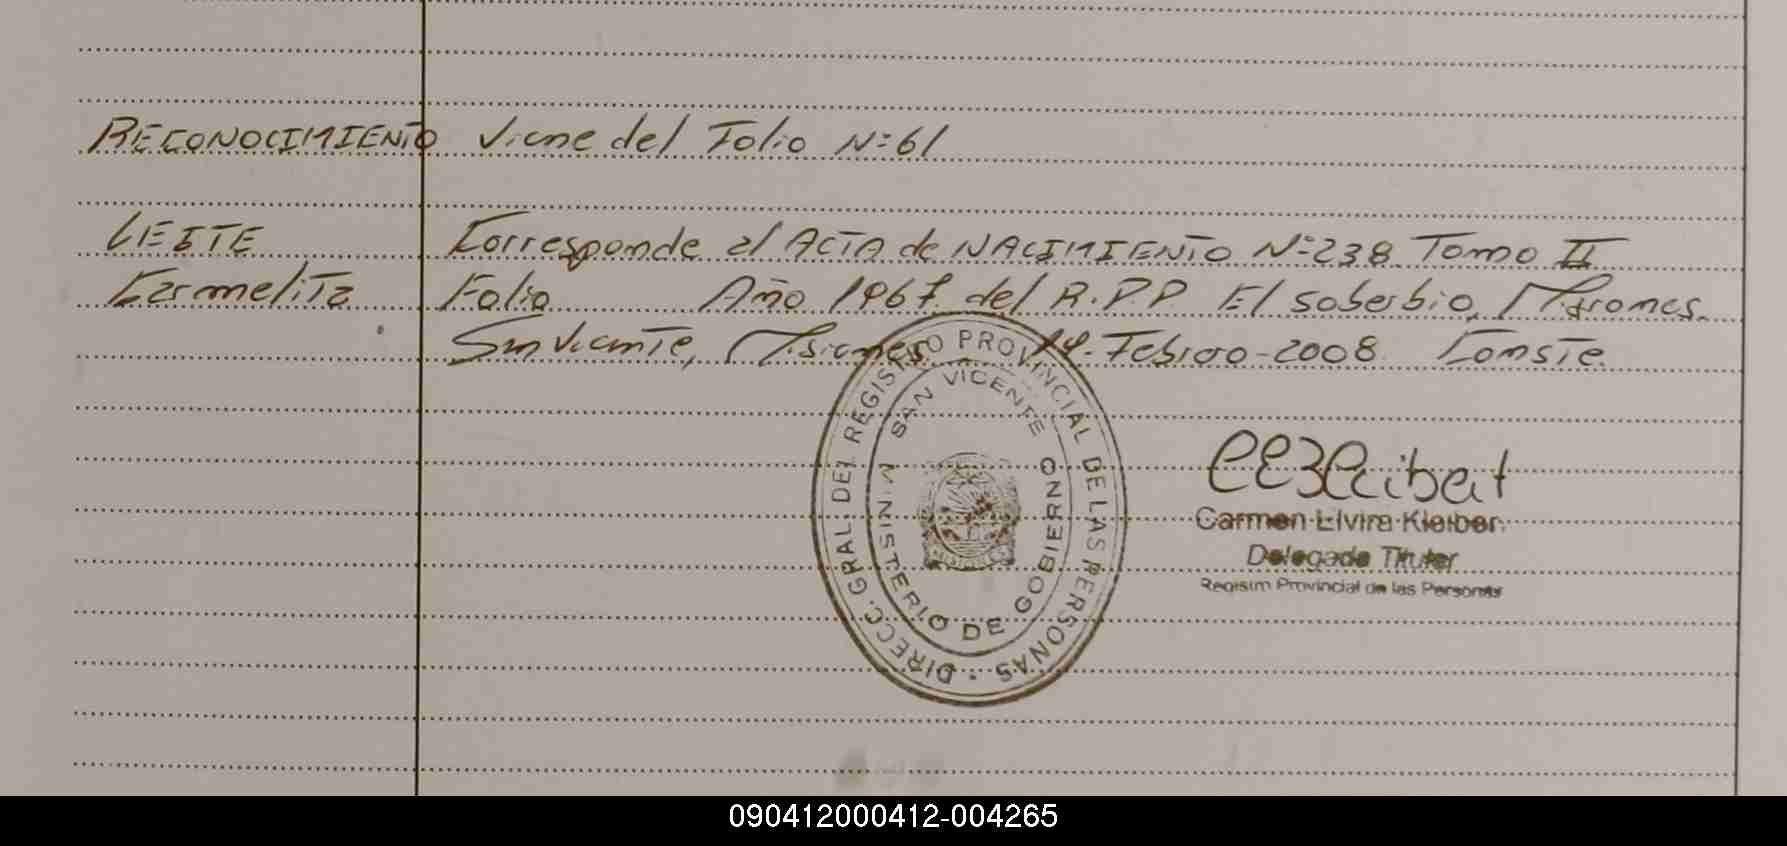 RECONOCIMIENTO Viene del Folio Nº 61
LEITE Corresponde al ACTA de NACIMIENTO Nº 238 Tomo II
Carmelita Folio Año 1967 del R.P.P El soberbio, Misiones.
San Vicente, Misiones 14. Febrero-2008. Conste.
DIRECC. GRAL. DEL REGISTRO PROVINCIAL DE LAS PERSONAS
SAN VICENTE
MINISTERIO DE GOBIERNO
Carmen Elvira Kleiber
Delegada Titular
Registro Provincial de las Personas
090412000412-004265